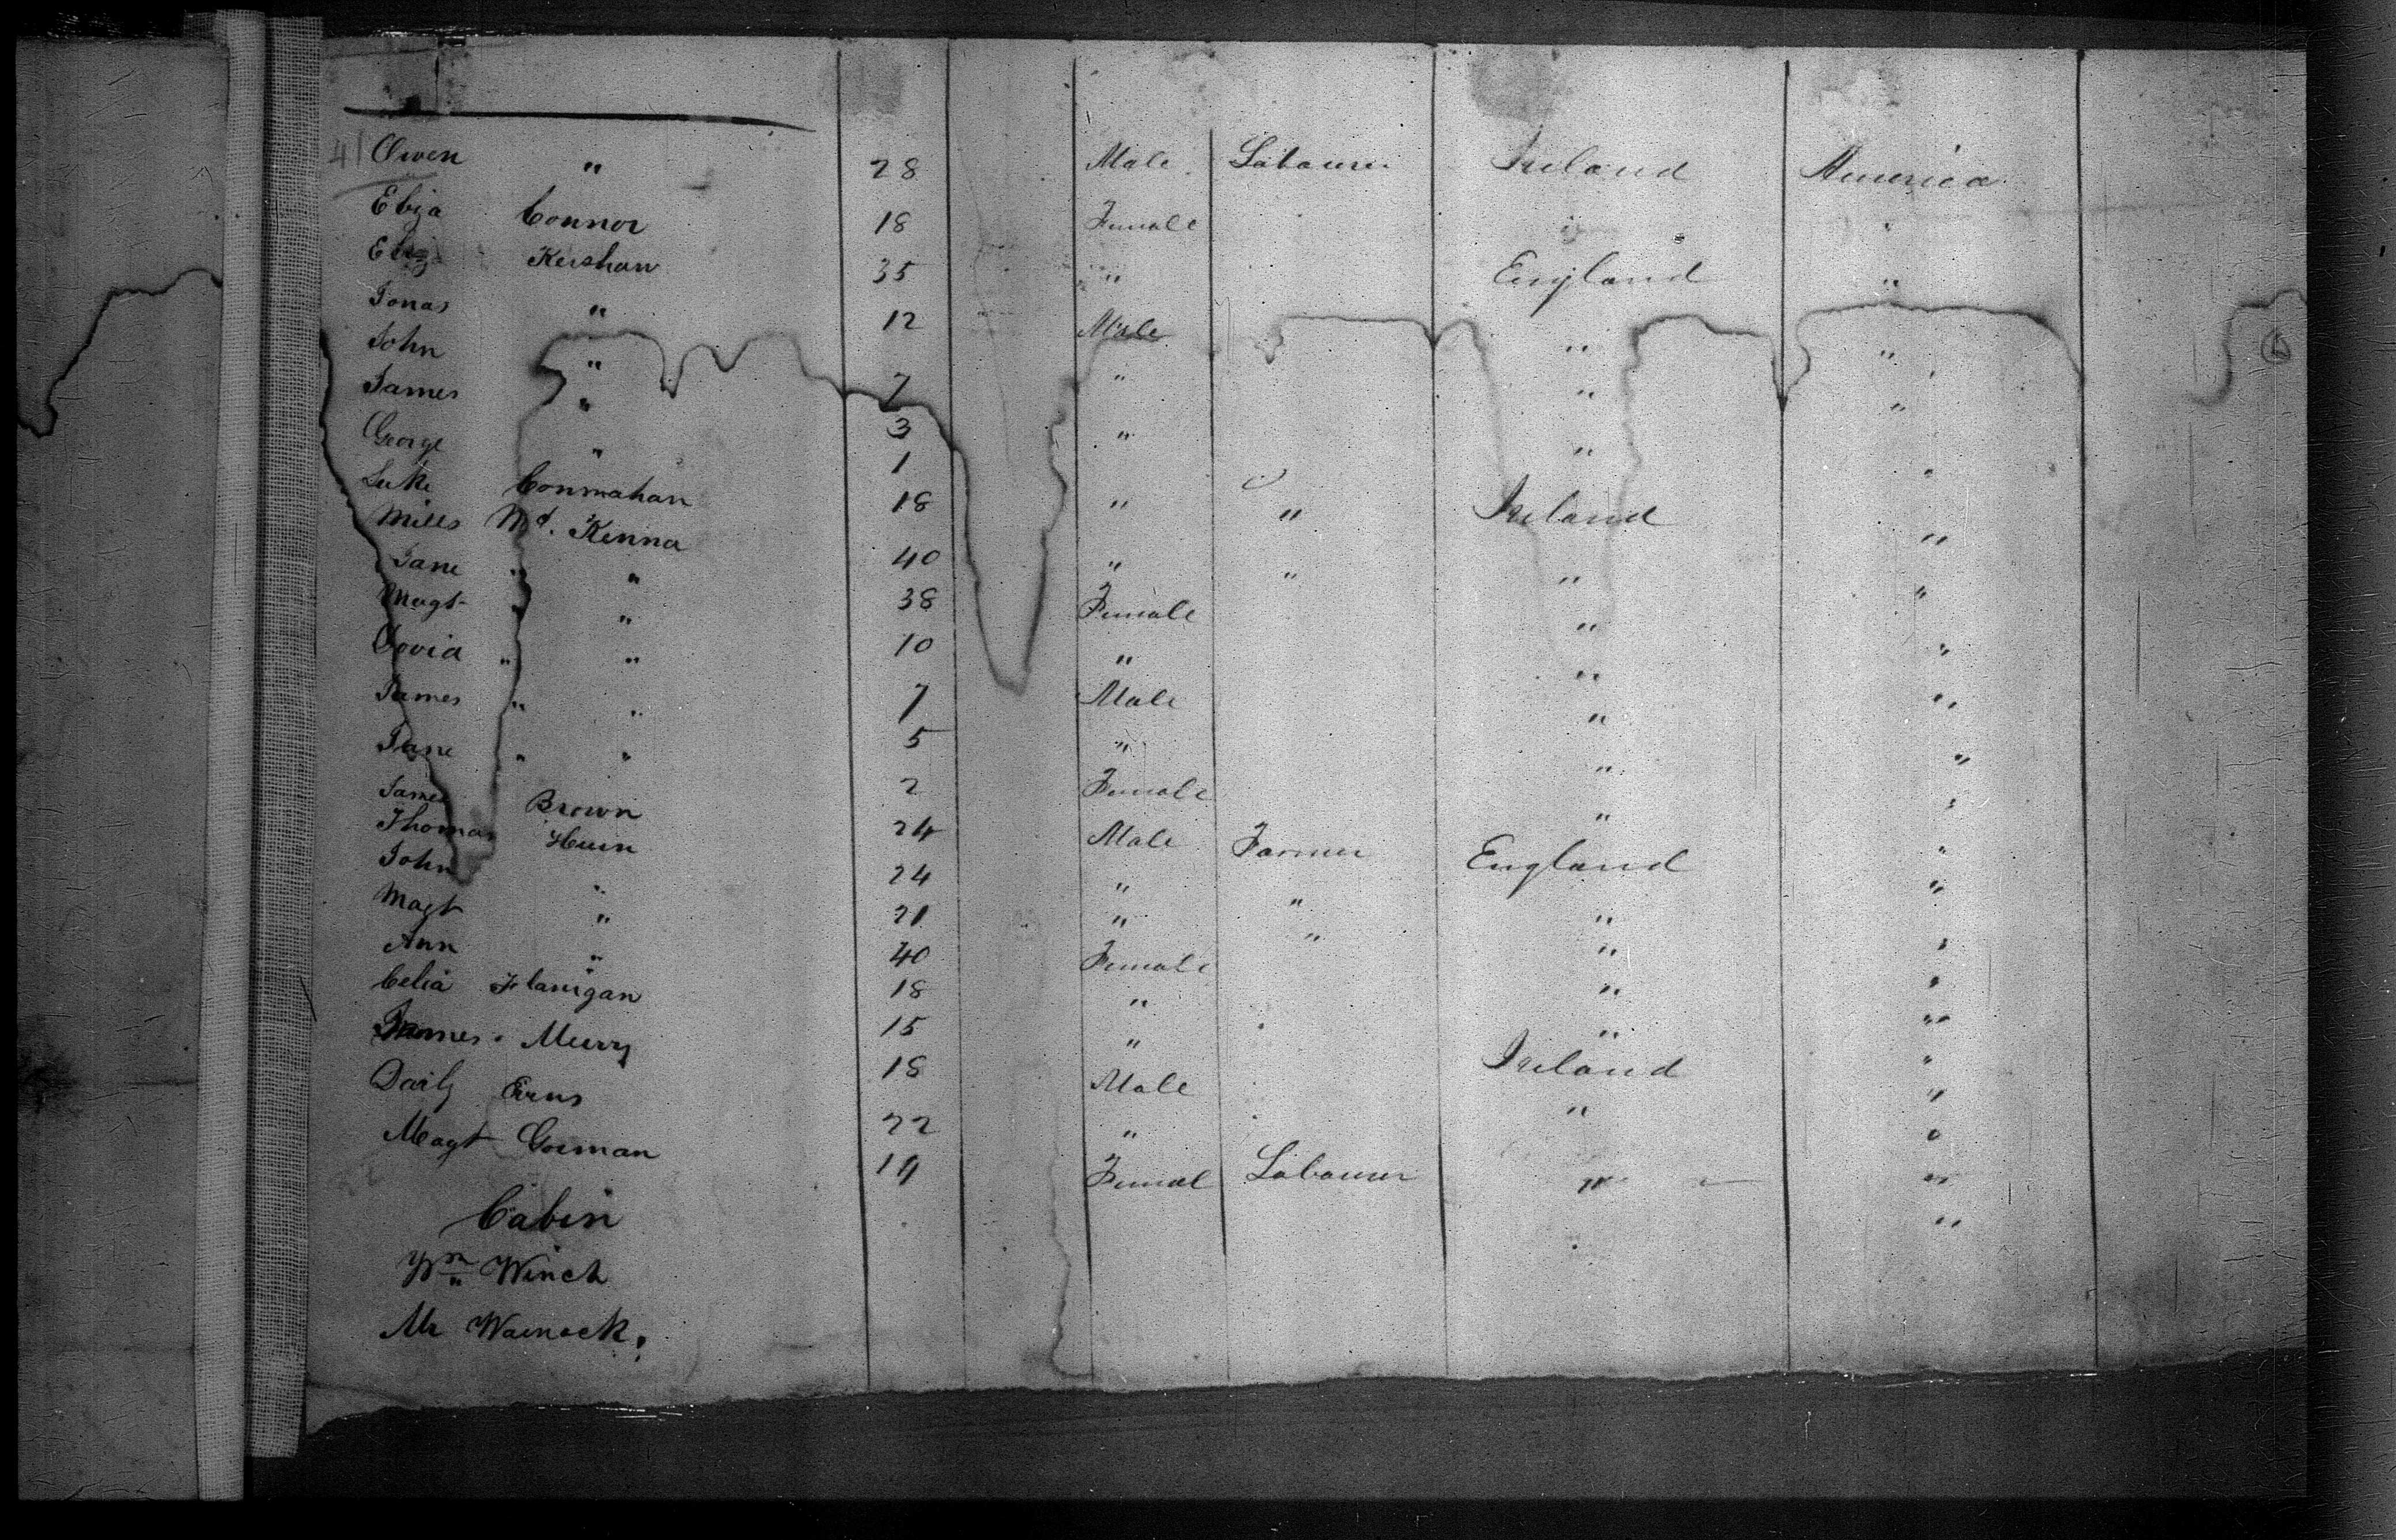 41 Owen " 28 Male Labourer Ireland America
Eliza Connor 18 Female " "
Eliz Kershaw 35 " England "
Jonas " 12 Male " "
John " 7 " " "
James " 3 " " "
George " 1
Luke Conmahan 18 " " Ireland "
Mills Mc. Kenna 40 " " " "
Jane " " 38 Female " "
Magt " " 10 " " "
David " " 7 Male " "
James " " 5 " " "
Jane " " 2 Female " "
James Brown 24 Male Farmer England "
Thomas 24 " " " "
John " 21 " " " "
Magt " 40 Female " "
Ann " 18 " " "
Celia Flanigan 15 " Ireland "
James Murry 18 Male " "
Daily 22 " "
Magt Gorman 19 Femal Labourer " "
Cabin
Wm Winch
Mr Warnock.